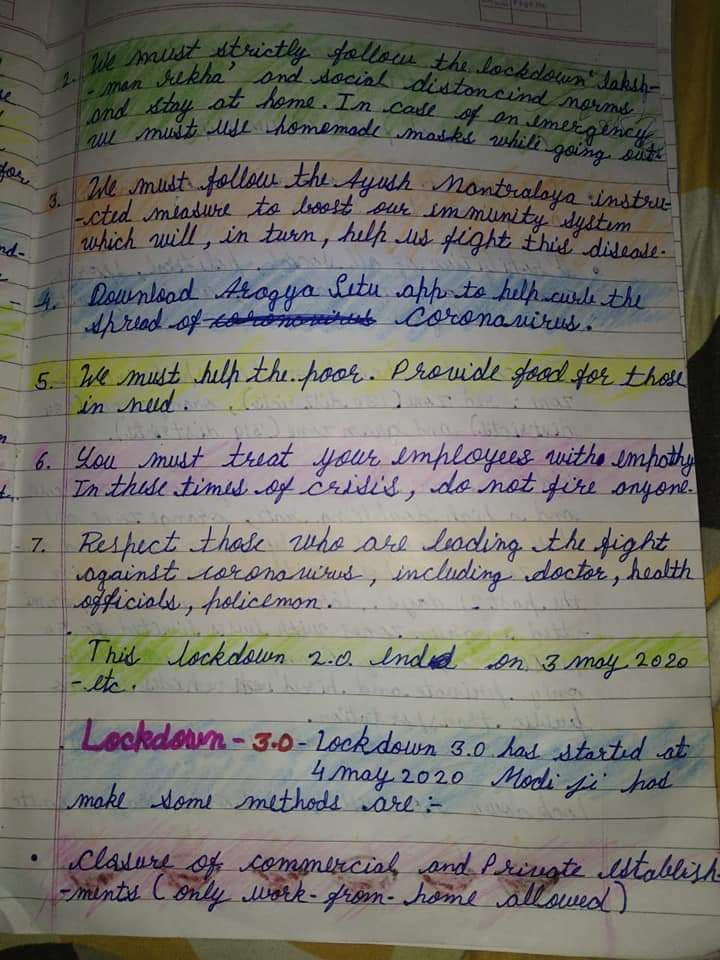 Page No.
2. We must strictly follow the lockdown 'laksh-
-man rekha' and social distancind norms
and stay at home. In case of an emergency
we must use homemade masks while going out.
3. We must follow the Ayush Mantralaya instru-
-cted measure to boost our immunity system
which will, in turn, help us fight this disease.
4. Download Arogya Setu app to help curb the
spread of coronavirus coronavirus.
5. We must help the poor. Provide food for those
in need.
6. You must treat your employees with empathy
In these times of crisis, do not fire anyone.
7. Respect those who are leading the fight
against coronavirus, including doctor, health
officials, policeman.
This lockdown 2.0. ended on 3 may 2020
- etc.
Lockdown - 3.0 - Lockdown 3.0 has started at
4 may 2020 Modi ji had
make some methods are :-
• Closure of commercial and Private establish-
-ments (only work-from-home allowed)